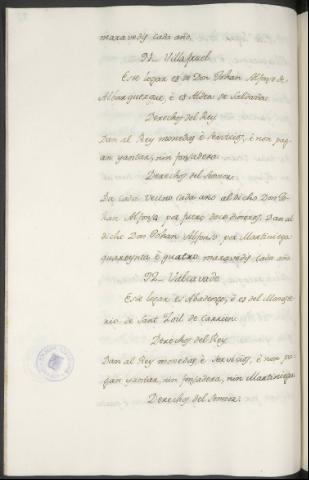 maravedis cada año.
91_ Villafruel
Este logar es de Don Johan Alfonso de
Alburquerque, è es Aldea de Saldaña.
Derechos del Rey
Dan al Rey monedas è servicios, è non pag-
an yantar, nin fonsadera.
Derechos del Sennor.
Da cada vecino cada año al dicho Don Jo-
han Alfonso por fuero doce dineros. Dan al
dicho Don Johan Alfonso por Martiniega
quareynta è quatro maravedis cada año
92_ Villnuvado
Este logar es Abadengo, è es del Monaste-
rio de Sant Zoil de Carrion.
Derechos del Rey
Dan al Rey monedas è servisios, è non pa-
gan yantar, nin fonsadera, nin Martiniega
Derechos del Sennor.